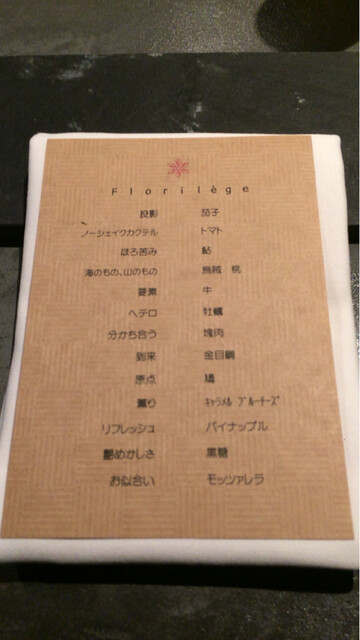 Florilège
投影 茄子
ノーシェイクカクテル トマト
ほろ苦み 鮎
海のもの、山のもの 烏賊 桃
要素 牛
ヘテロ 牡蠣
分かち合う 塊肉
到来 金目鯛
原点 鳩
薫り キャラメル ブルーチーズ
リフレッシュ パイナップル
艶めかしさ 黒糖
お似合い モッツァレラ